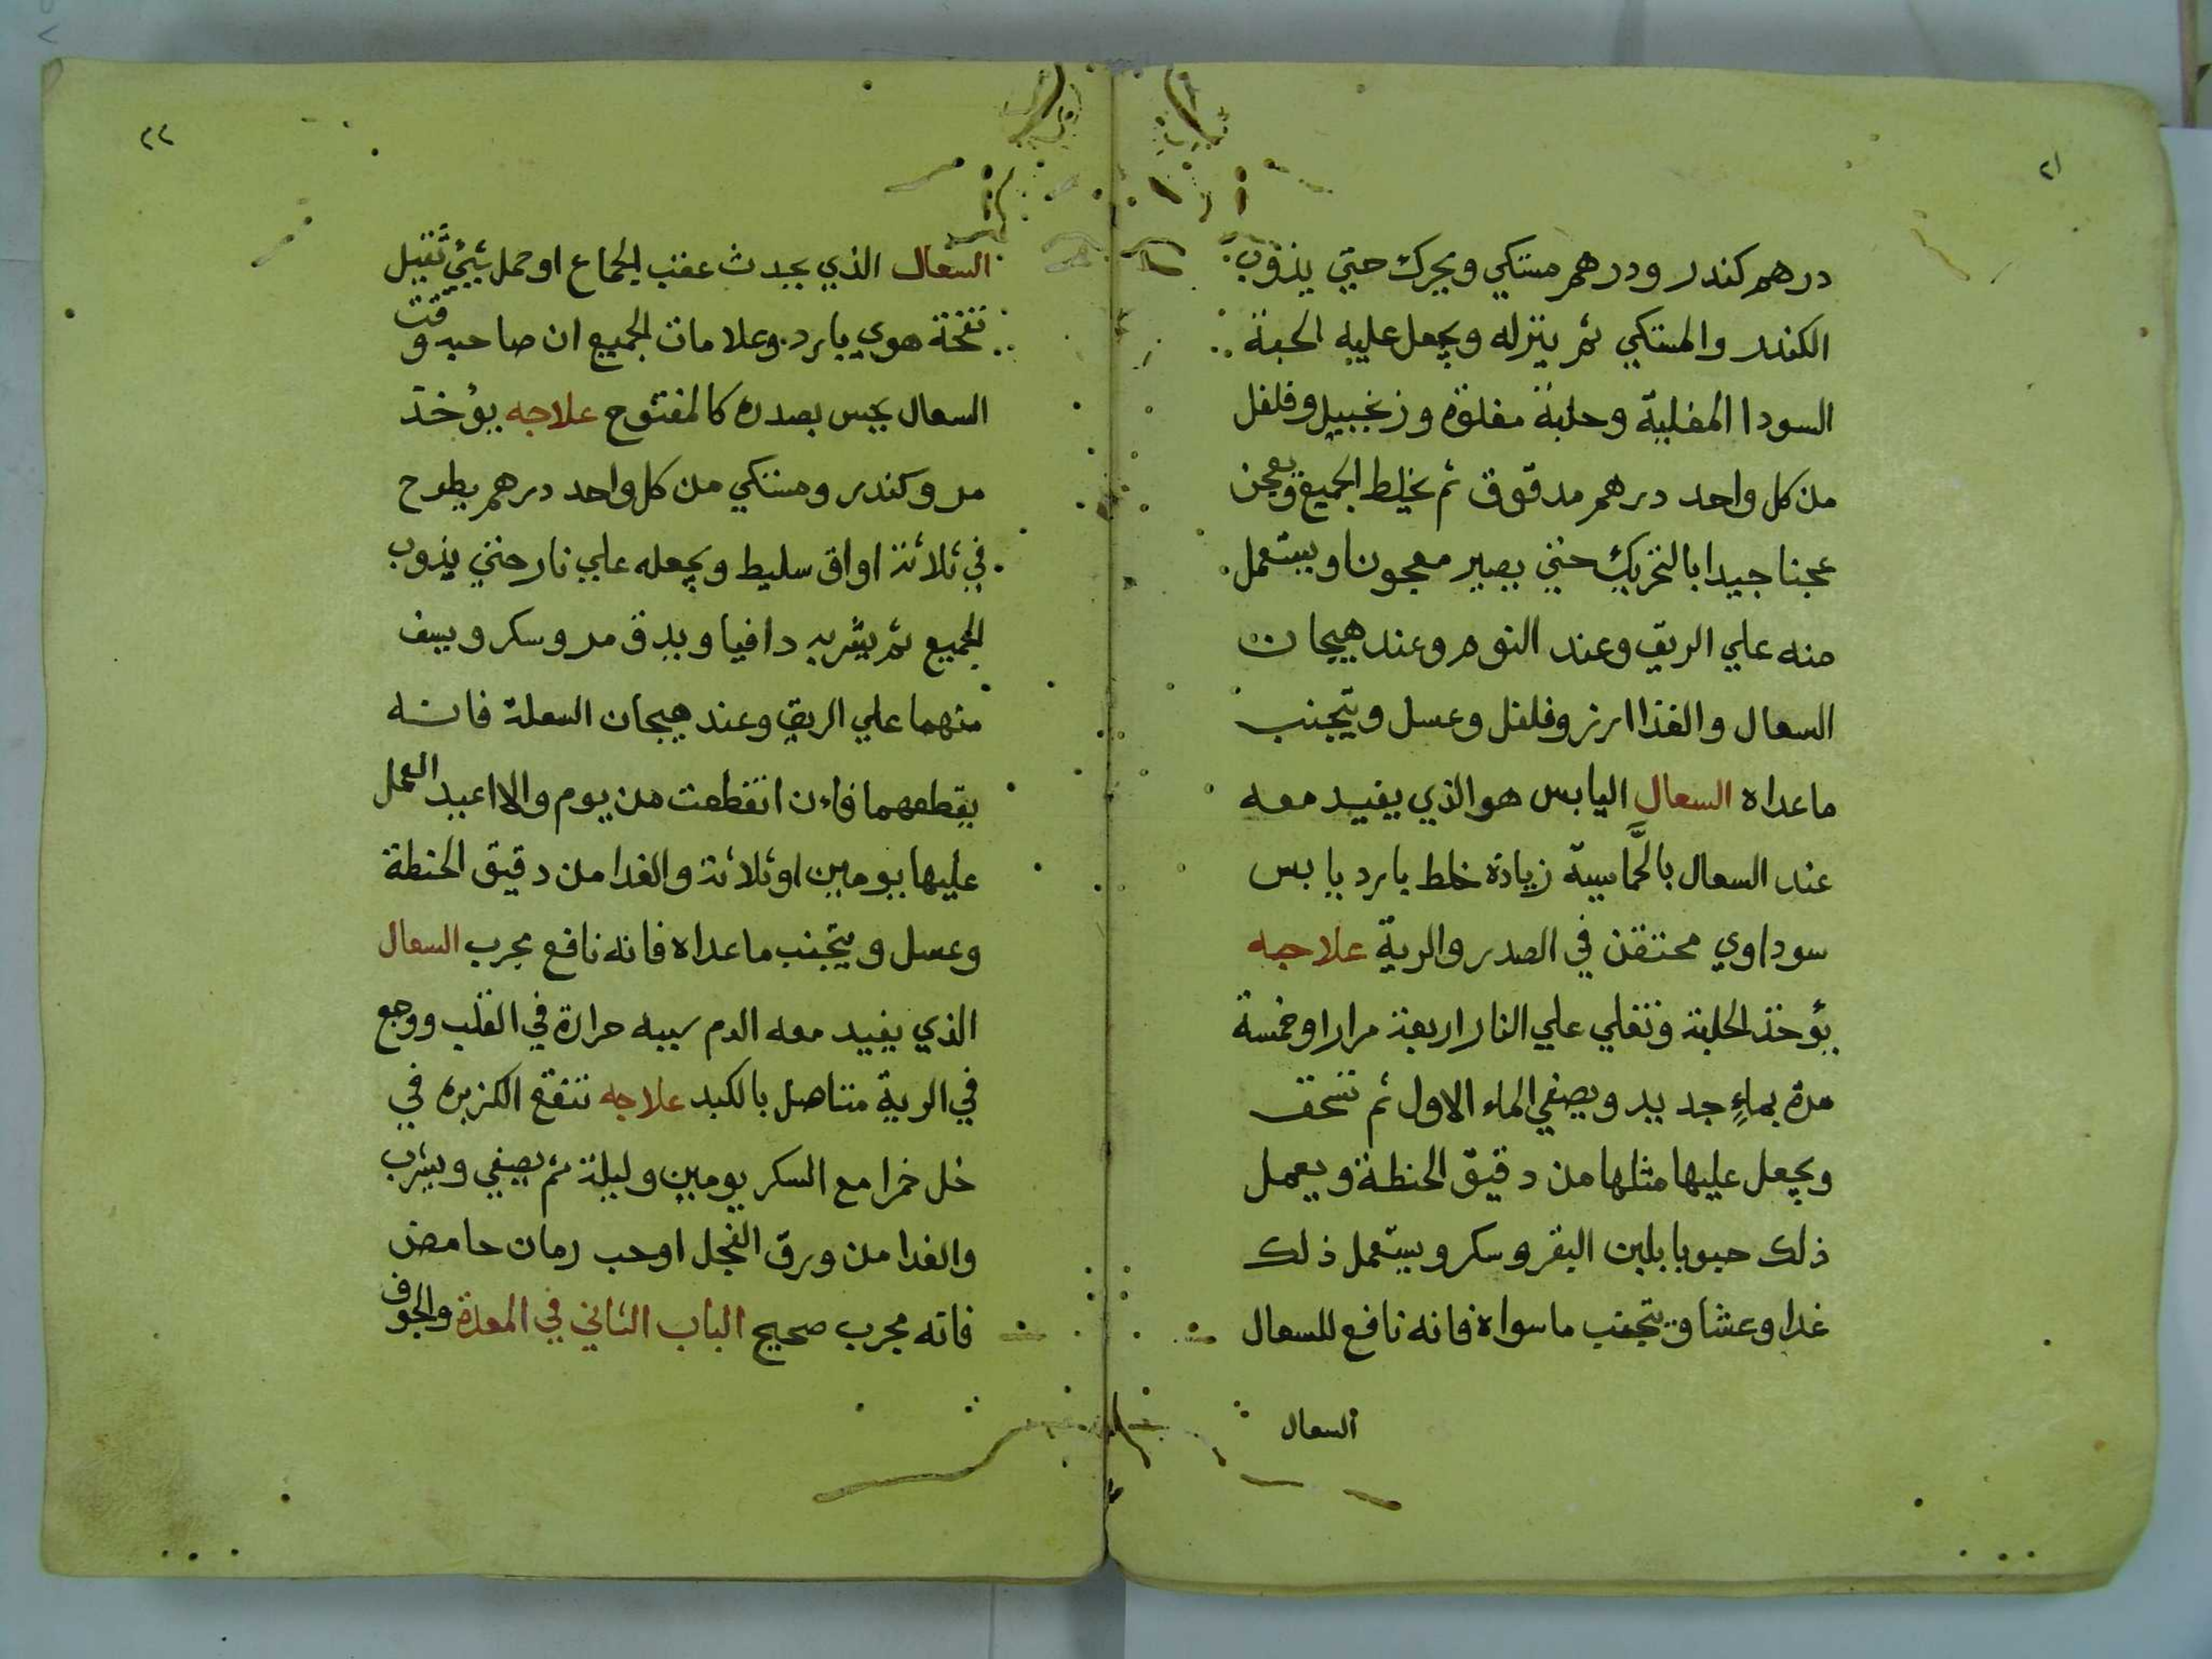 ٢١
درهم كندر ودرهم مستكي ويحرك حتي يذوب
الكندر والمستكي ثم ينزله ويجعل عليه الحبة
السودا المغلية وحلبة مغلوة وزنجبيل وفلفل
من كل واحد درهم مدقوق ثم يخلط الجميع ويعجن
عجنا جيدا بالتحريك حتي يصير معجونا ويستعمل
منه علي الريق وعند النوم وعند هيجان
السعال والغذا ارز وفلفل وعسل ويتجنب
ماعداه السعال اليابس هو الذي يفيد معه
عند السعال زيادة خلط بارد يابس
سوداوي محتقن في الصدر والرية علاجه
يؤخذ الحلبة وتغلي علي النار اربعة مرارا وخمسة
مرة بماءٍ جديد ويصفي الماء الاول ثم تسحق
ويجعل عليها مثلها من دقيق الحنطة ويعمل
ذلك حبوبا بلبن البقر وسكر ويستعمل ذلك
غدا وعشا ويتجنب ماسواه فانه نافع للسعال
السعال
٢٢
السعال الذي يحدث عقب الجماع او حمل شيئ ثقيل
نفخة هوي بارد وعلامات الجميع ان صاحبه وقت
السعال يحس بصدره كالمفتوح علاجه يؤخذ
مر وكندر ومستكي من كل واحد درهم يطرح
في ثلاثة اواق سليط ويجعله علي نار حتي يذوب
الجميع ثم يشربه دافيا ويدق مر وسكر ويسف
منهما علي الريق وعند هيجان السعلة فانه
يقطعهما فاءن انقطعت من يوم والا اعيد العمل
عليها يومين او ثلاثة والغدا من دقيق الحنطة
وعسل ويتجنب ماعداه فانه نافع مجرب السعال
الذي يفيد معه الدم سببه حرارة في القلب ووجع
في الرية متاصل بالكبد علاجه تنقع الكزبره في
خل خمرا مع السكر يومين وليلة ثم يصفي ويشرب
والغدا من ورق الفجل او حب رمان حامض
فانه مجرب صحيح الباب الثاني في المعدة والجوف